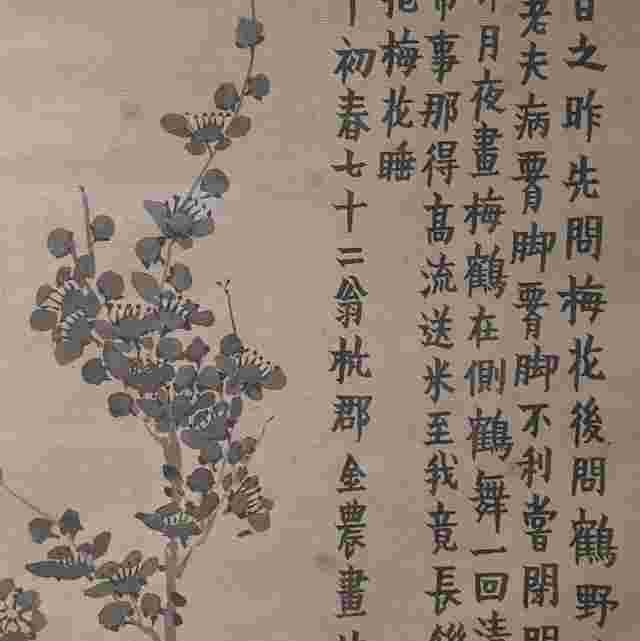 之昨先問梅花後問鶴野
老夫病腰脚腰脚不利嘗閉
月夜畫梅鶴在側鶴舞一回清
事那得髙流送米至我竟長
抱梅花睡
初春七十二翁杭郡金農畫